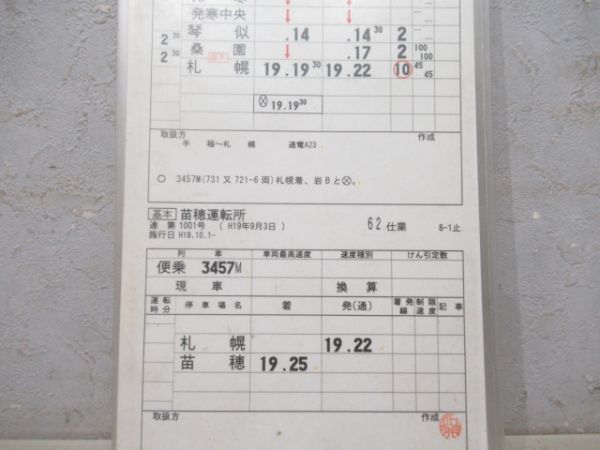 発寒中央 ↓ ↓ ...
2 30 琴似 .14 .14 30 2 ...
2 30 桑園 ↓ .17 2 100 100
札幌 19.19 30 19.22 10 45 45
⊗ 19.19 30
取扱方 作成
手稲~札幌 通電AZ3
○ 3457M(731又721-6両)札幌着、岩Bと⊗。
基本 苗穂運転所
達 第1001号 ( H19年9月3日 ) 62仕業 8-1止
施行日 H19.10.1-
列車 車両最高速度 速度種別 けん引定数
便乗 3457M
現車 換算
運転時分 停車場名 着 発(通) 着発線 制限速度 記事
札幌 19.22
苗穂 19.25
取扱方 作成